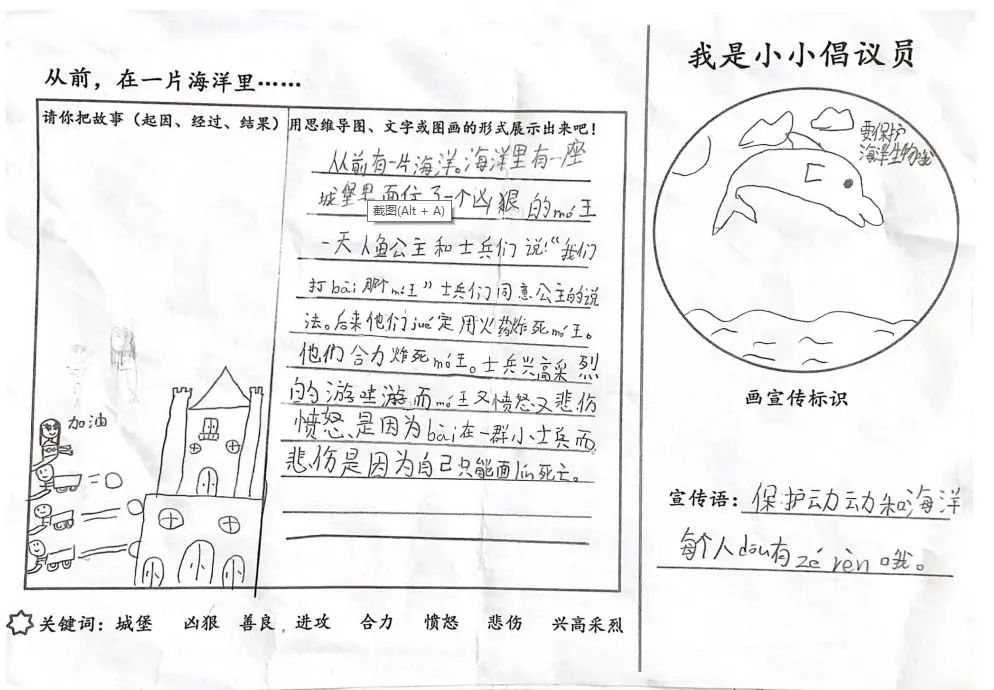 从前，在一片海洋里……
请你把故事（起因、经过、结果）用思维导图、文字或图画的形式展示出来吧！
从前有一片海洋。海洋里有一座
城堡里面住了一个凶狠的mó王
一天人鱼公主和士兵们说:“我们
打bài那个mó王”士兵们同意公主的说
法。后来他们jué定用火药炸死mó王。
他们合力炸死mó王。士兵兴高采烈
的游哇游而mó王又愤怒又悲伤
愤怒是因为bài在一群小士兵而
悲伤是因为自己只能面临死亡。
截图(Alt + A)
加油
关键词：城堡 凶狠 善良 进攻 合力 愤怒 悲伤 兴高采烈
我是小小倡议员
要保护
海洋生物哦
画宣传标识
宣传语：保护动动和海洋
每个人dōu有zé rèn哦。